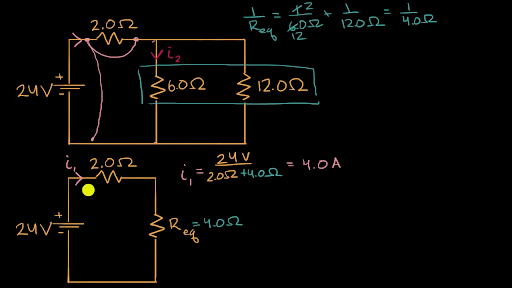 1/R_eq = 1·2/6.0Ω + 1/12.0Ω = 1/4.0Ω
12
2.0Ω
i₂
+
24V
-
6.0Ω
12.0Ω
i₁
2.0Ω
i₁ = 24V/(2.0Ω+4.0Ω) = 4.0A
+
24V
-
R_eq = 4.0Ω